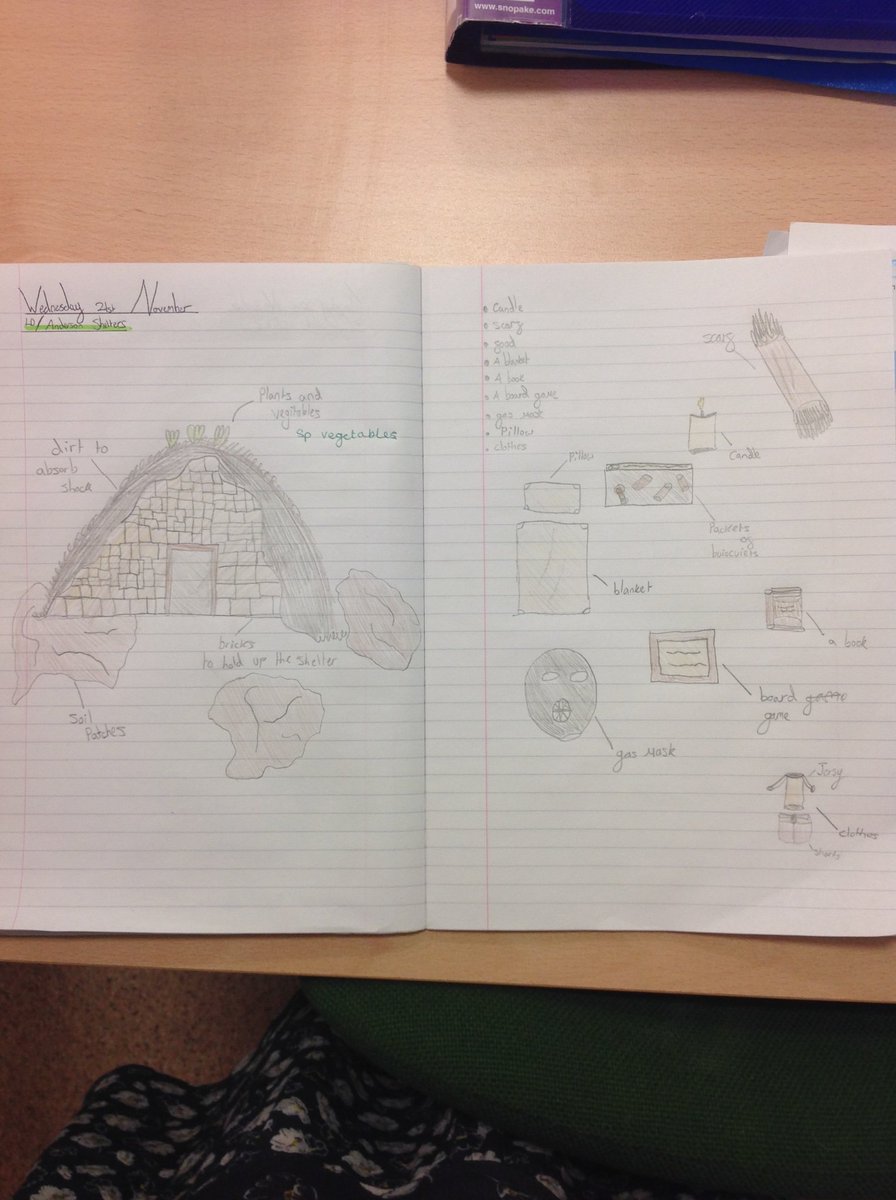 www.snopake.com
Wednesday 21st November
LO/ Anderson Shelters
Plants and
vegitables
sp vegetables
dirt to
absorb
shock
bricks
to hold up the shelter
Soil
Patches
• Candle
• scarf
• food
• A blanket
• A book
• A board game
• gas mask
• Pillow
• clothes
scarf
Candle
Pillow
Packets
of
boiscuiets
blanket
a book
board game
game
gas mask
Jersy
clothes
shorts